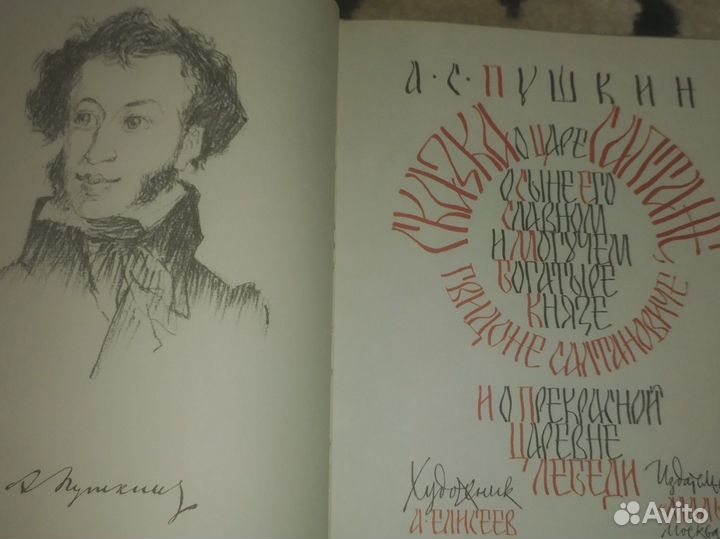 А. Пушкин
А·С·ПУШКИН
СКАЗКА О ЦАРЕ САЛТАНЕ,
О СЫНЕ ЕГО
СЛАВНОМ
И МОГУЧЕМ
БОГАТЫРЕ
КНЯЗЕ
ГВИДОНЕ САЛТАНОВИЧЕ
И О ПРЕКРАСНОЙ
ЦАРЕВНЕ
ЛЕБЕДИ
Художник
А. ЕЛИСЕЕВ
Москва
Avito